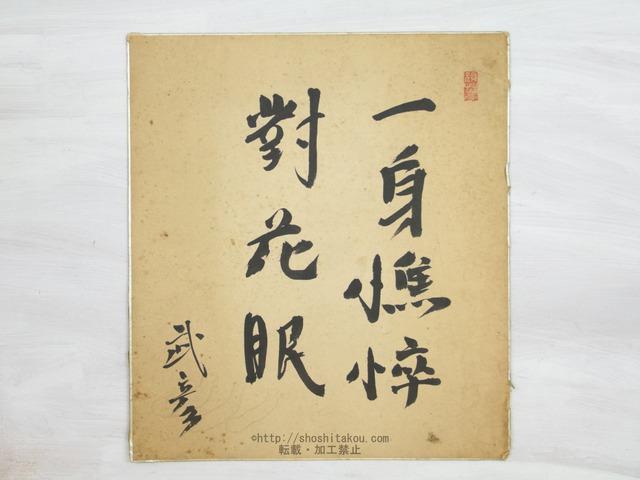 一身憔悴
對花眠
武彦
©http://shoshitakou.com
転載・加工禁止